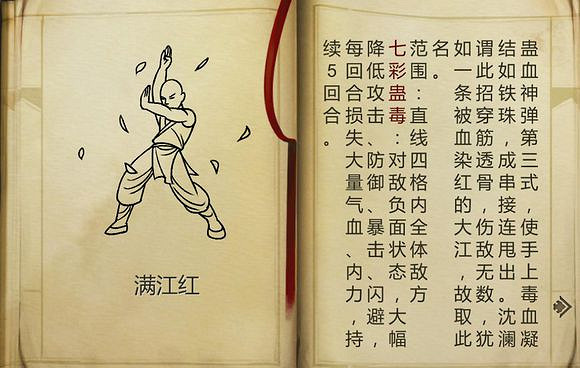 满江红
蛊血神弹第三式，使手上毒血凝
结如铁珠，成串接连甩出。沈澜
谓此招穿筋透骨，伤敌无数。犹
如一条被血染红的大江，故取此
名。
范围：直线四格内全体敌方
七彩蛊毒：对敌负面状态，大幅
降低攻击、防御、暴击、闪避，
每回合损失大量气血、内力，持
续5回合。